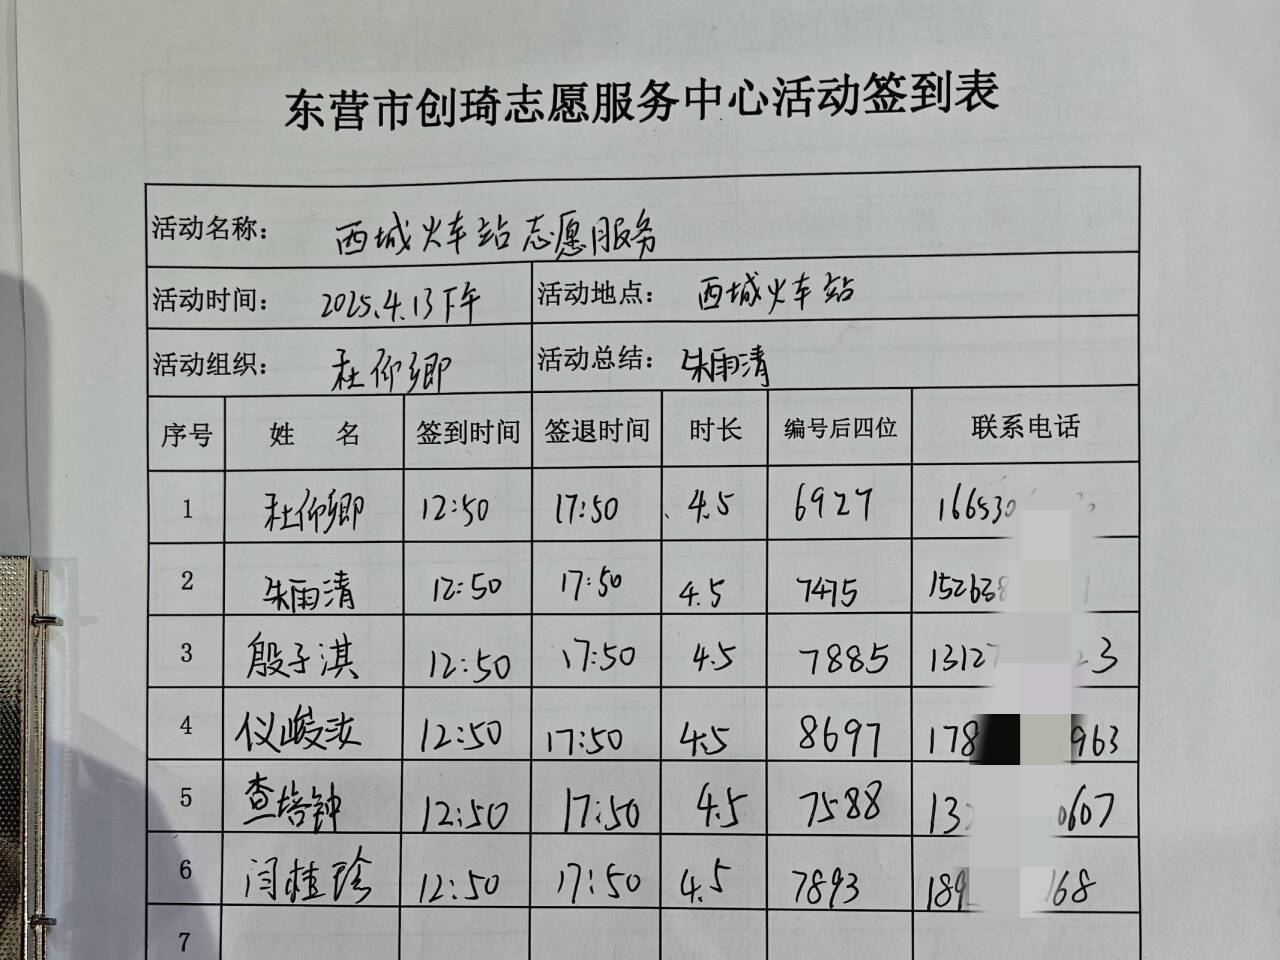 东营市创琦志愿服务中心活动签到表
活动名称： 西城火车站志愿服务
活动时间： 2025.4.13下午 活动地点： 西城火车站
活动组织： 杜仰卿 活动总结： 朱雨清
序号 姓 名 签到时间 签退时间 时长 编号后四位 联系电话
1 杜仰卿 12:50 17:50 4.5 6927 166530
2 朱雨清 12:50 17:50 4.5 7475 152638 1
3 殷子淇 12:50 17:50 4.5 7885 13127 23
4 仪峻汝 12:50 17:50 4.5 8697 178 963
5 查培钟 12:50 17:50 4.5 7588 13 0607
6 闫桂珍 12:50 17:50 4.5 7893 189 168
7